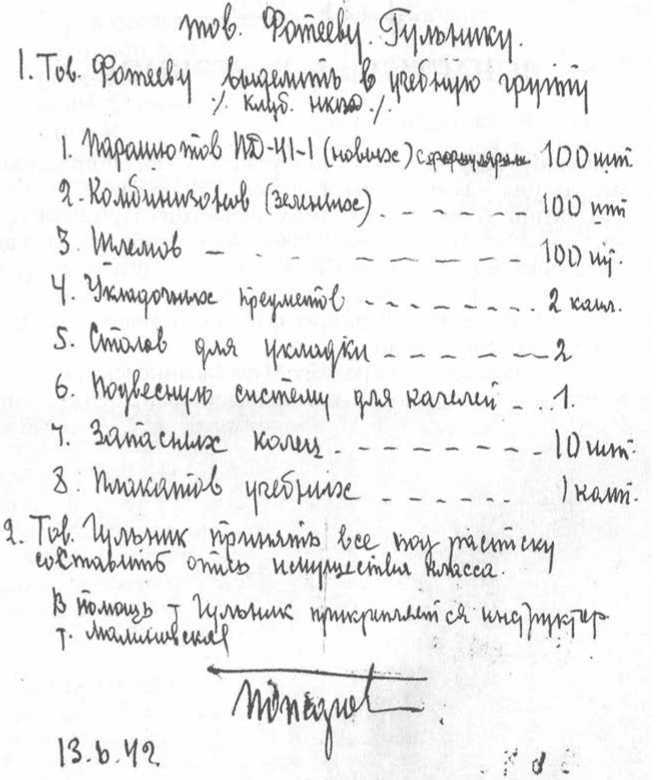 тов. Фотееву. Гульнику.
1. Тов. Фотееву выделить в учебную группу
% клуб. НКПО %
1. Парашютов ПД-41-1 (новых) с формулярами 100 шт
2. Комбинизонов (зеленых) . - - - 100 шт
3. Шлемов - - - - - - 100 шт.
4. Укладочных предметов - - - - - - - 2 компл.
5. Столов для укладки - - - - - - 2
6. Подвесную систему для качелей - .. 1.
7. Запасных колец . - - - - - - - 10 шт.
8. Плакатов учебных - - - - - 1 комп.
2. Тов. Гульник принять все под расписку
составить опись имущества класса.
В помощь т Гульник прикрепляется инструктор
т. Малиновская
13.6.42